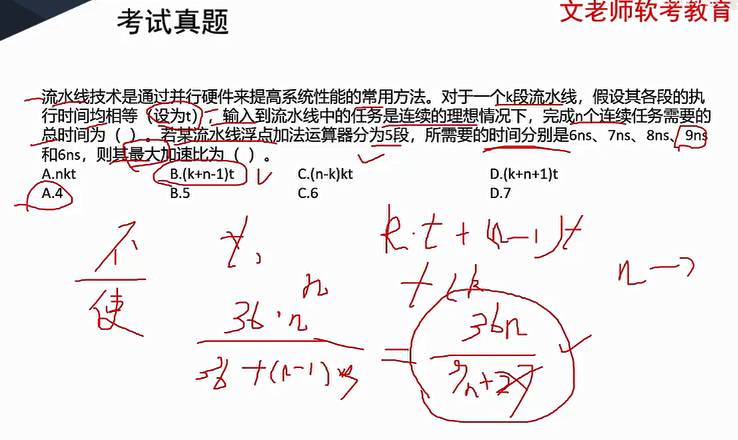 考试真题
文老师软考教育
流水线技术是通过并行硬件来提高系统性能的常用方法。对于一个k段流水线，假设其各段的执
行时间均相等（设为t），输入到流水线中的任务是连续的理想情况下，完成n个连续任务需要的
总时间为（ ）。若某流水线浮点加法运算器分为5段，所需要的时间分别是6ns、7ns、8ns、9ns
和6ns，则其最大加速比为（ ）。
A.nkt B.(k+n-1)t C.(n-k)kt D.(k+n+1)t
A.4 B.5 C.6 D.7
不 t, k.t+(n-1)t
使 n→
36·n = 36n
36+(n-1) 9n+27